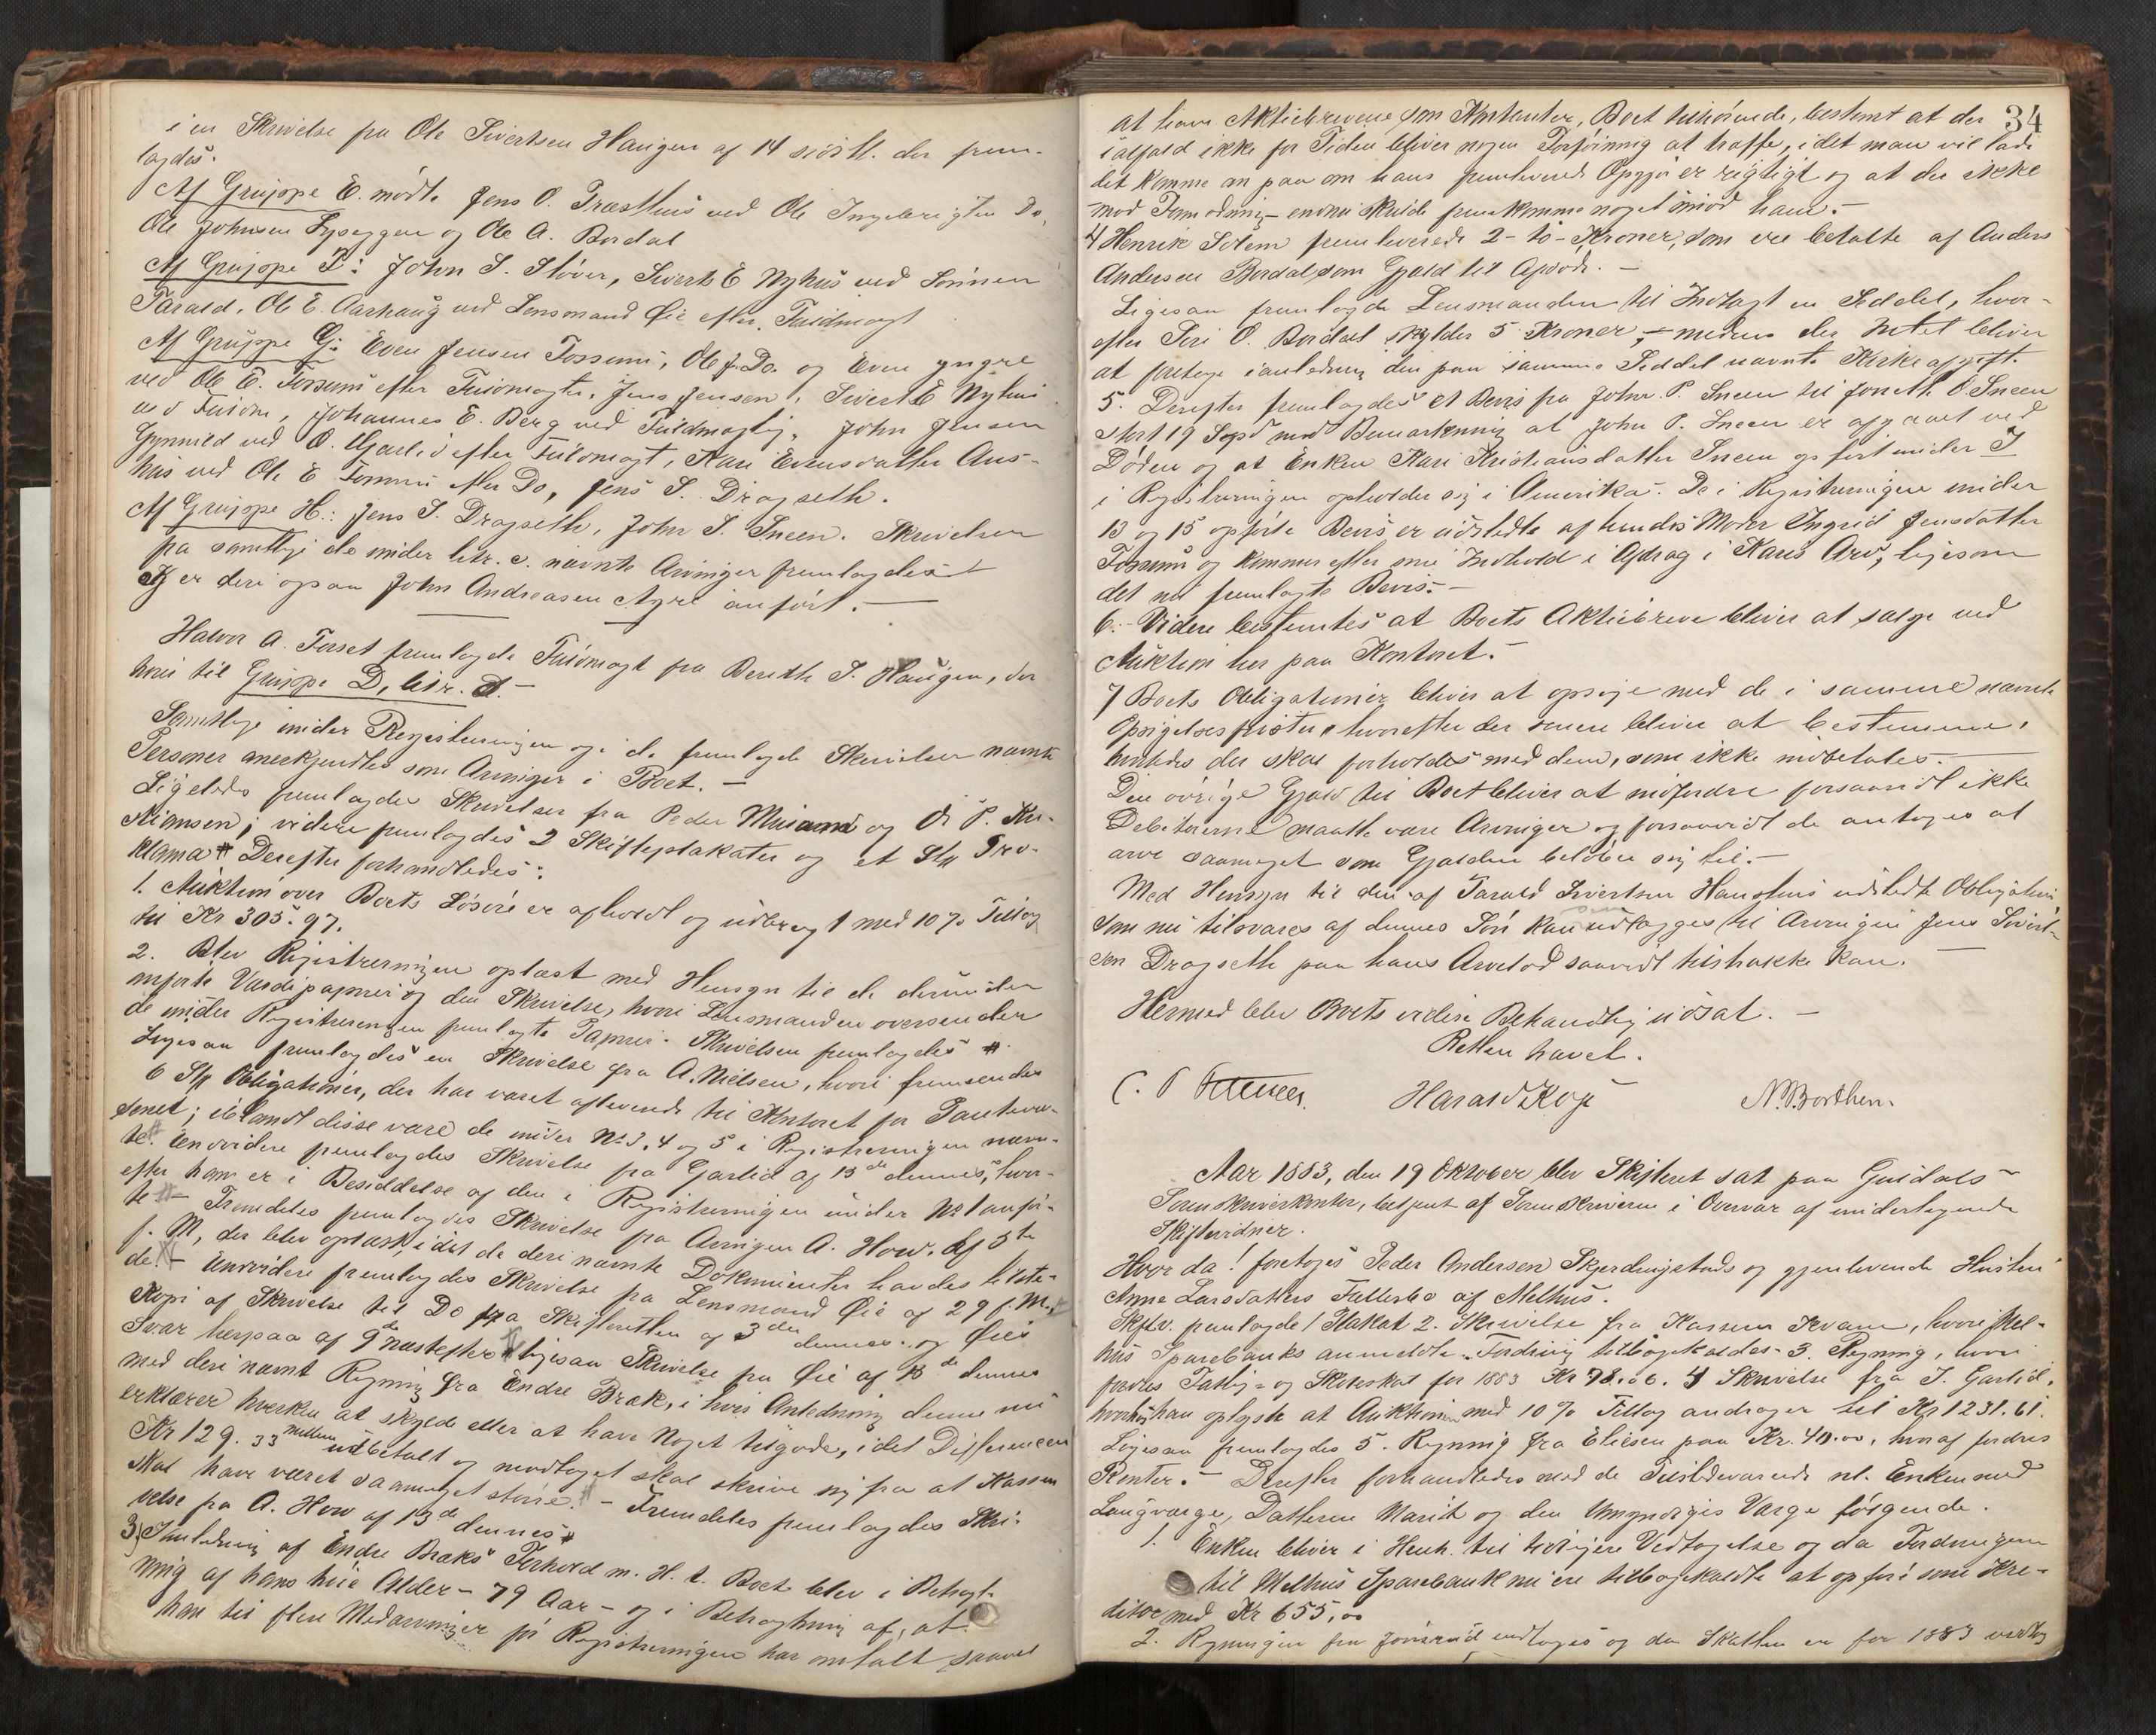 i en Skrivelse fra Ole Sivertsen Haugen af 14 sidstl. der frem-
lagdes.
Af Gruppe E. mødte Jens O. Præsthus ved Ole Ingebrigtsen Do,
Ole Johnsen og Ole A. Bordal
Af Gruppe F: John S. Støver, Sivert E Nyhus ved Sønnen
Tarald, Ole E. Aarhaug ved Lensmand Øie efter Fuldmagt
Af Gruppe G: Even Jensen Fossum, Ole J. Do. og Even yngre
ved Ole E. Fossum efter Fuldmagt, Jens Jensen, Sivert E Nyhus
ved Fuldm, Johannes E. Berg ved Fuldmægtig, John Jensen
Gynnild ved O. Garlid efter Fuldmagt, Kari Evensdatter Aus-
hus ved Ole E Fossum efter Do, Jens S. Dragseth.
Af Gruppe H.: Jens S. Dragseth, John S. Sneen. Skrivelsen
fra samtlige de under litr. c. nævnte Arvinger fremlagdes
og er deri ogsaa John Andreasen Agre anført.
Halvor A. Forset fremlagde Fuldmagt fra Berethe S. Haugen, der
hører til Gruppe D, litr. d.
Samtlige under Registreringen og i de fremlagde Skrivelser nævnte
Personer anerkjendtes som Arvinger i Boet. -
Ligeledes fremlagdes Skrivelser fra Peder Musum og O. P. Kri-
stiansen; videre fremlagdes 2 Skifteplakater og et Stk Pro-
klama # Derefter forhandledes:
1. Auktion over Boets Løsøre er afholdt og udbragt med 10 % Tillæg
til Kr 305.97.
2. Blev Registreringen oplæst med Hensyn til de derunder
anførte Værdipapirer og den Skrivelse, hvori Lensmanden oversender
de under Registreringen fremlagte Papirer. Skrivelsen fremlagdes #
Ligesaa fremlagdes en Skrivelse fra A. Nielsen, hvori fremsendes
6 Stk Obligationer, der har været afleverede til Kontoret for Pantevæ-
senet; iblandt disse vare de under No 3, 4 og 5 i Registreringen nævn-
te. # Envidere fremlagdes Skrivelse fra Garlid af 13de dennes, hvor-
efter han er i Besiddelse af den i Registreringen under No 1 anfør-
te # - Fremdeles fremlagdes Skrivelse fra Arvingen A. How. af 5te
f. M, der blev oplæst, idet de deri nævnte Dokumenter havdes tilste-
de # - Envidere fremlagdes Skrivelse fra Lensmand Øie af 29 f. M. #
Kopi af Skrivelse til Do fra Skifteretten af 3die dennes og Øies
Svar herpaa af 9de næstefter # ligesaa Skrivelse fra Øie af 13de dennes
med deri nævnt Regning fra Endre Bræk, i hvis Anledning denne nu
erklærer hverken at skylde eller at have Noget tilgode, idet Differencen
Kr 129.33 mellem udbetalt og modtaget skal skrive sig fra at Kassen
skal have været saameget større. # - Fremdeles fremlagdes Skri-
velse fra A. How af 13de dennes #
3) I Anledning af Endre Bræks Forhold m. H. t. Boet blev i Betragt-
ning af hans høie Alder - 79 Aar - og i Betragtning af, at
han til flere Medarvinger før Registreringen har omtalt saavel
34
at have Aktiebrevene som Kontanter, Boet tilhørende, bestemt at der
ialfald ikke for Tiden bliver nogen Forføining at træffe, idet man vil lade
det komme an paa om hans fremleverede Opgjør er rigtigt og at der ikke
mod Formodning - endnu skulde fremkomme noget imod ham. -
4 Henrik Solem fremleverede 2 - to - Kroner, som er betalte af Anders
Andersen Bordal som Gjæld til Afdøde. -
Ligesaa fremlagde Lensmanden til Indtægt en Seddel, hvor-
efter Siri O. Bordal skylder 5 Kroner, - medens der Intet bliver
at foretage i anledning den paa samme Seddel nævnte Kirkeafgift.
5. Derefter fremlagdes et Bevis fra John P. Sneen til O Sneen
stort 19 Spd med Bemærkning at John P. Sneen er afgaaet ved
Døden og at Enken Kari Kristiansdatter Sneen opført under I
i Registreringen opholder sig i Amerika. De i Registreringen under
13 og 15 opførte Bevis er udstedte af hendes Moder Ingrid Jensdatter
Fossum og kommer efter sit Indhold i Afdrag i Karis Arv, ligesom
det nu fremlagte Bevis. -
6. - Videre bestemtes at Boets Aktiebreve bliver at sælge ved
Auktion her paa Kontoret. -
7 Boets Obligationer bliver at opsige med de i samme nævnte
Opsigelsesfrister, hvorefter der senere bliver at bestemme,
hvorledes der skal forholdes med dem, som ikke indbetales. -
Den øvrige Gjæld til Boet bliver at indfordre forsaavidt ikke
Debitorerne maatte være Arvinger og forsaavidt de antages at
arve saameget som Gjælden beløber sig til. -
Med Hensyn til den af Tarald Sivertsen Haushus udstedte Obligation,
som nu tilsvares af dennes Søn kan udlægges til Arvingen Jens Sivert-
sen Dragseth paa hans Arvelod saavidt tilstrække kan.
Hermed blev Boets videre Behandling udsat. -
Retten hævet.
Harald Kog N. Borthen.
Aar 1883, den 19 Oktober blev Skifteret sat paa Guldals
Sorenskriverkontor, betjent af Sorenskriveren i Overvær af undertegnede
Skiftevidner.
Hvor da! foretoges Peder Andersen Skjerdingstads og gjenlevende Hustru
Anne Larsdatters Fællesbo af Melhus.
Skftv. fremlagde 1 Plakat 2. Skrivelse fra Kasserer Kvam, hvori Mel-
hus Sparebanks anmeldte Fordring tilbagekaldes 3. Regning, hvori
fordres Fattig- og Skoleskat for 1883 Kr 78.26. 4 Skrivelse fra J. Garlid,
hvori han oplyste at Auktionen med 10 % Tillæg andrager til Kr 1231.61.
Ligesaa fremlagdes 5. Regning fra Eliesen paa Kr. 40.00, hvoraf fordres
Renter. - Derefter forhandledes med de Tilstedeværende nl. Enken med
Laugværge, Datteren Marit og den Umyndiges Værge følgende.
1. Enken bliver i Henh. til tidligere Vedtagelse og da Fordringen
til Melhus Sparebank nu er tilbagekaldte at opføre som Kre-
ditor med Kr 655,00
2. Regningen fra vedtoges og den Skatten er for 1883 vedtog